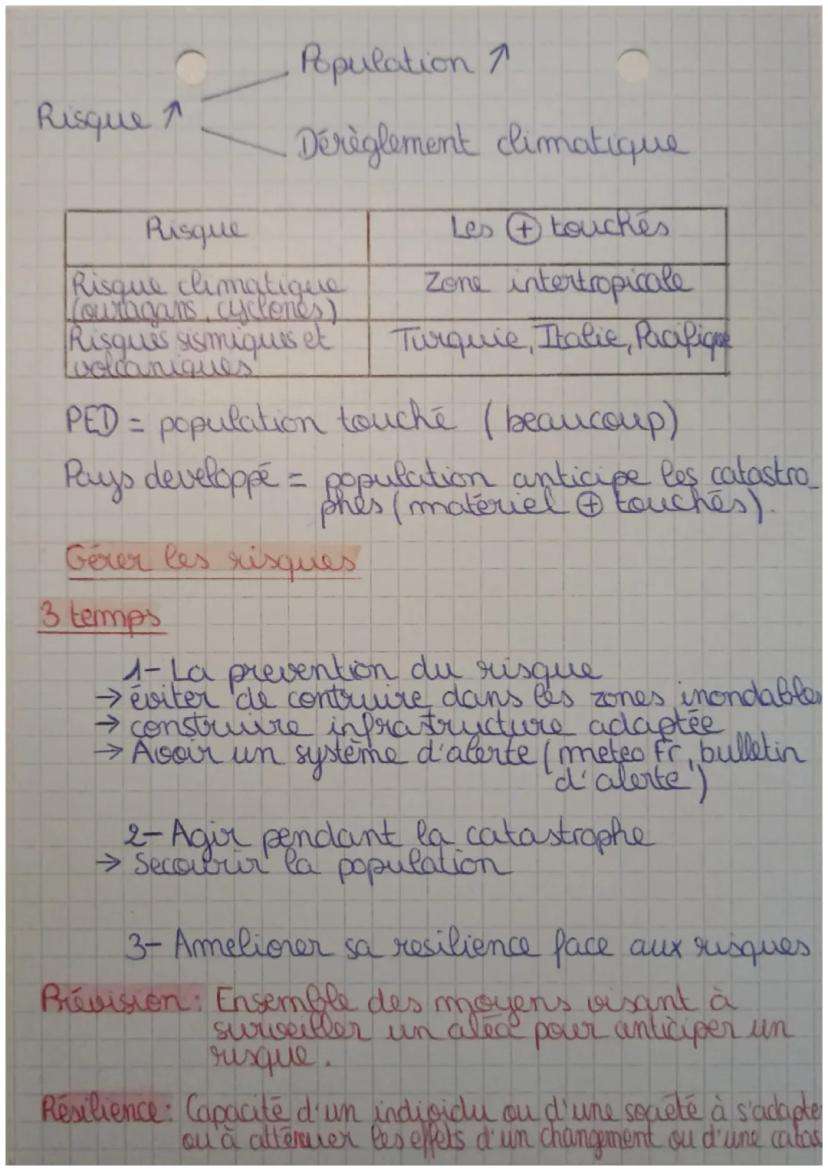 Population ↗
Risque ↗
Dérèglement climatique
Risque
Les ⊕ touchés
Risque climatique
(ouragans, cyclones)
Zone intertropicale
Risques sismiques et
volcaniques
Turquie, Italie, Pacifique
PED = population touché (beaucoup)
Pays developpé = population anticipe les catastro_
phes (matériel ⊕ touchés).
Gérer les risques
3 temps
1- La prevention du risque
→ éviter de contruire dans les zones inondables
→ construire infrastructure adaptée
→ Avoir un système d'alerte (meteo fr, bulletin
d'alerte)
2- Agir pendant la catastrophe
→ Secourir la population
3- Ameliorer sa resilience face aux risques
Prévision : Ensemble des moyens visant à
surveiller un aléa pour anticiper un
risque.
Résilience : Capacité d'un individu ou d'une société à s'adapte
ou à atténuer les effets d'un changement ou d'une catas